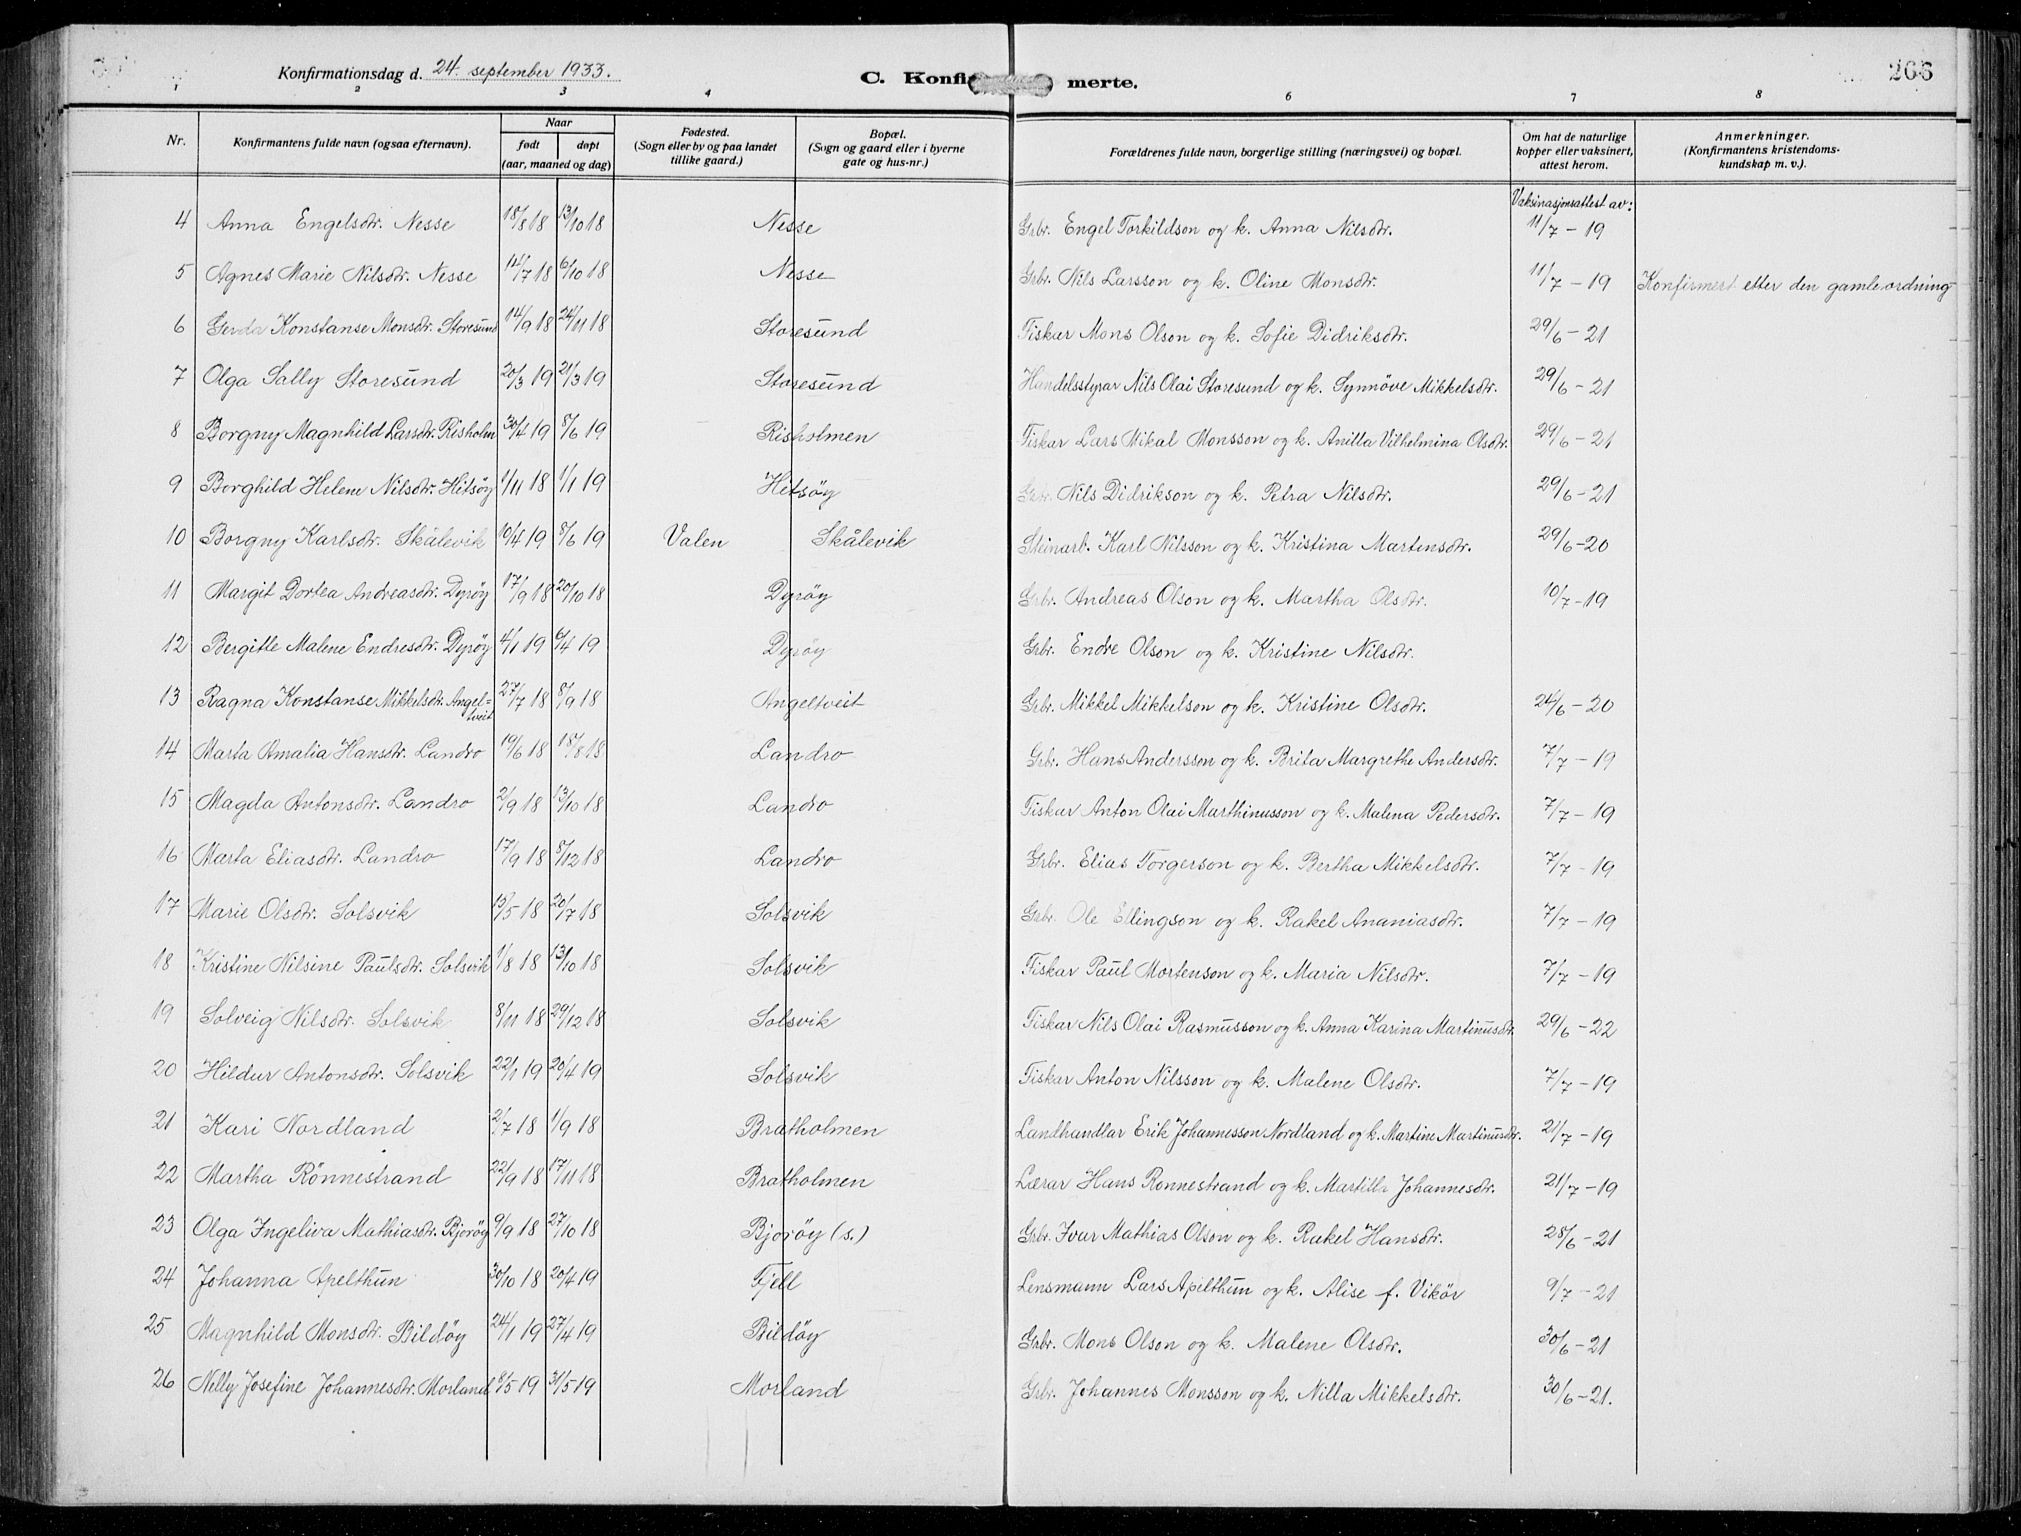 Konfirmationsdag d. 24. september 1933.
C. Konfir merte.
266
1 2 3 4 6 7 8
Nr.
Konfirmantens fulde navn (ogsaa efternavn).
Naar
født døpt
(aar, maaned og dag)
Fødested.
(Sogn eller by og paa landet
tillike gaard.)
Bopæl.
(Sogn og gaard eller i byerne
gate og hus-nr.)
Forældrenes fulde navn, borgerlige stilling (næringsvei) og bopæl.
Om hat de naturlige
kopper eller vaksinert,
attest herom.
Anmerkninger.
(Konfirmantens kristendoms-
kundskap m. v.).
Vaksinasjonsattest av:
4 Anna Engelsdtr. Nesse 18/8 18 13/10 18 Nesse Grbr. Engel Torkildson og k. Anna Nilsdtr. 11/7 - 19
5 Agnes Marie Nilsdtr. Nesse 14/7 18 6/10 18 Nesse Grbr. Nils Larsson og k. Oline Monsdtr. 11/7 - 19 Konfirmert etter den gamle ordning
6 Gerda Konstanse Monsdtr. Storesund 14/9 18 24/11 18 Storesund Fiskar Mons Olson og k. Sofie Didriksdtr. 29/6 - 21
7 Olga Sally Storesund 20/3 19 21/3 19 Storesund Handelsstyrar Nils Olai Storesund og k. Synnöve Mikkelsdtr. 29/6 - 21
8 Borgny Magnhild Larsdtr. Risholm 30/4 19 8/6 19 Risholmen Fiskar Lars Mikal Monsson og k. Anitta Vilhelmina Olsdtr. 29/6 - 21
9 Borghild Helene Nilsdtr. Hitsöy 1/11 18 1/1 19 Hitsöy Grbr. Nils Didrikson og k. Petra Nilsdtr. 29/6 - 21
10 Borgny Karlsdtr. Skålevik 10/4 19 8/6 19 Valen Skålevik Steinarb. Karl Nilsson og k. Kristina Martensdtr. 29/6 - 20
11 Margit Dortea Andreasdtr. Dyröy 17/9 18 20/10 18 Dyröy Grbr. Andreas Olson og k. Martha Olsdtr. 10/7 - 19
12 Bergitte Malene Endresdtr. Dyröy 4/1 19 6/4 19 Dyröy Grbr. Endre Olson og k. Kristine Nilsdtr.
13 Ragna Konstanse Mikkelsdtr. Angel=
tveit 27/7 18 8/9 18 Angeltveit Grbr. Mikkel Mikkelson og k. Kristine Olsdtr. 24/6 - 20
14 Marta Amalia Hansdtr. Landro 19/6 18 18/8 18 Landro Grbr. Hans Andersson og k. Brita Margrethe Andersdtr. 7/7 - 19
15 Magda Antonsdtr. Landro 2/9 18 13/10 18 Landro Fiskar Anton Olai Marthinusson og k. Malena Pedersdtr. 7/7 - 19
16 Marta Eliasdtr. Landro 17/9 18 8/12 18 Landro Grbr. Elias Torgerson og k. Bertha Mikkelsdtr. 7/7 - 19
17 Marie Olsdtr. Solsvik 13/5 18 20/7 18 Solsvik Grbr. Ole Ellingson og k. Rakel Ananiasdtr. 7/7 - 19
18 Kristine Nilsine Paulsdtr. Solsvik 1/8 18 13/10 18 Solsvik Fiskar Paul Mortenson og k. Maria Nilsdtr. 7/7 - 19
19 Solveig Nilsdtr. Solsvik 8/11 18 29/12 18 Solsvik Fiskar Nils Olai Rasmusson og k. Anna Karina Martinusdtr. 29/6 - 22
20 Hildur Antonsdtr. Solsvik 22/1 19 20/4 19 Solsvik Fiskar Anton Nilsson og k. Malene Olsdtr. 7/7 - 19
21 Kari Nordland 2/7 18 1/9 18 Bratholmen Landhandlar Erik Johannesson Nordland og k. Martine Martinusdtr. 21/7 - 19
22 Martha Rönnestrand 22/9 18 17/11 18 Bratholmen Lærar Hans Ronnestrand og k. Martille Johannesdtr. 21/7 - 19
23 Olga Ingeliva Mathiasdtr. Bjoröy 9/9 18 27/10 18 Bjoröy (s.) Grbr. Ivar Mathias Olson og k. Rakel Hansdtr. 28/6 - 21
24 Johanna Apelthun 30/10 18 20/4 19 Fjell Lensmann Lars Apelthun og k. Alise f. Vikör 9/7 - 21
25 Magnhild Monsdtr. Bildöy 24/1 19 27/4 19 Bildöy Grbr. Mons Olson og k. Malene Olsdtr. 30/6 - 21
26 Nelly Josefine Johannesdtr. Morland 9/5 19 31/5 19 Morland Grbr. Johannes Monsson og k. Nilla Mikkelsdtr. 30/6 - 21.